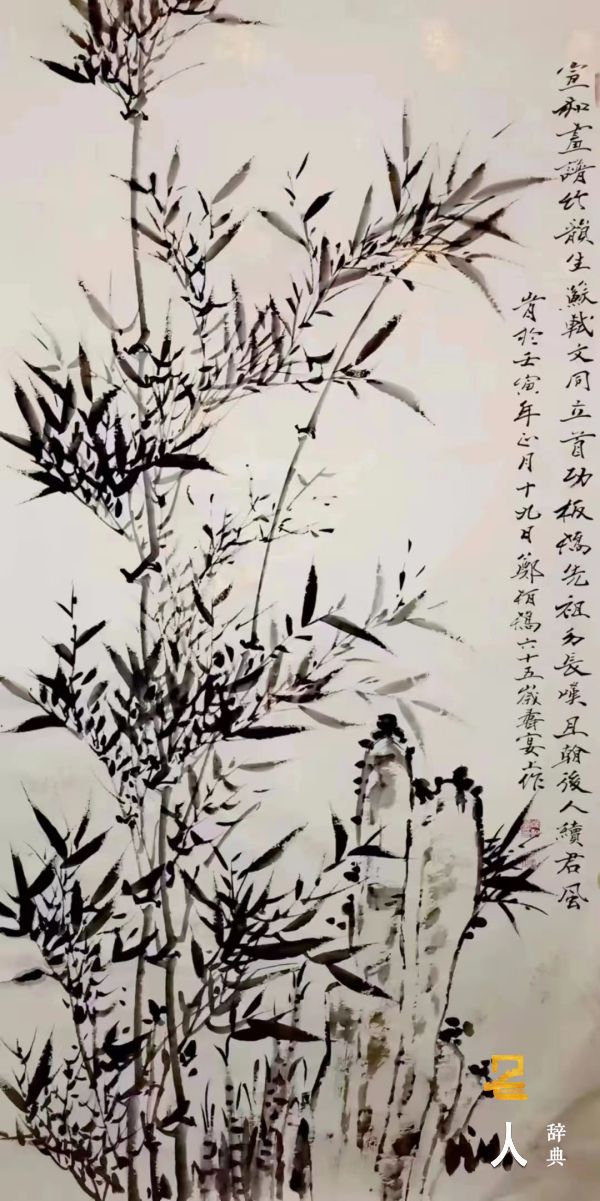 宣和畫譜竹韻生蘇軾文同立首功板橋先祖長嘆且翰後人續君風
於壬寅年正月十九日鄭栢橋六十五歲壽宴上作
名人
辞典